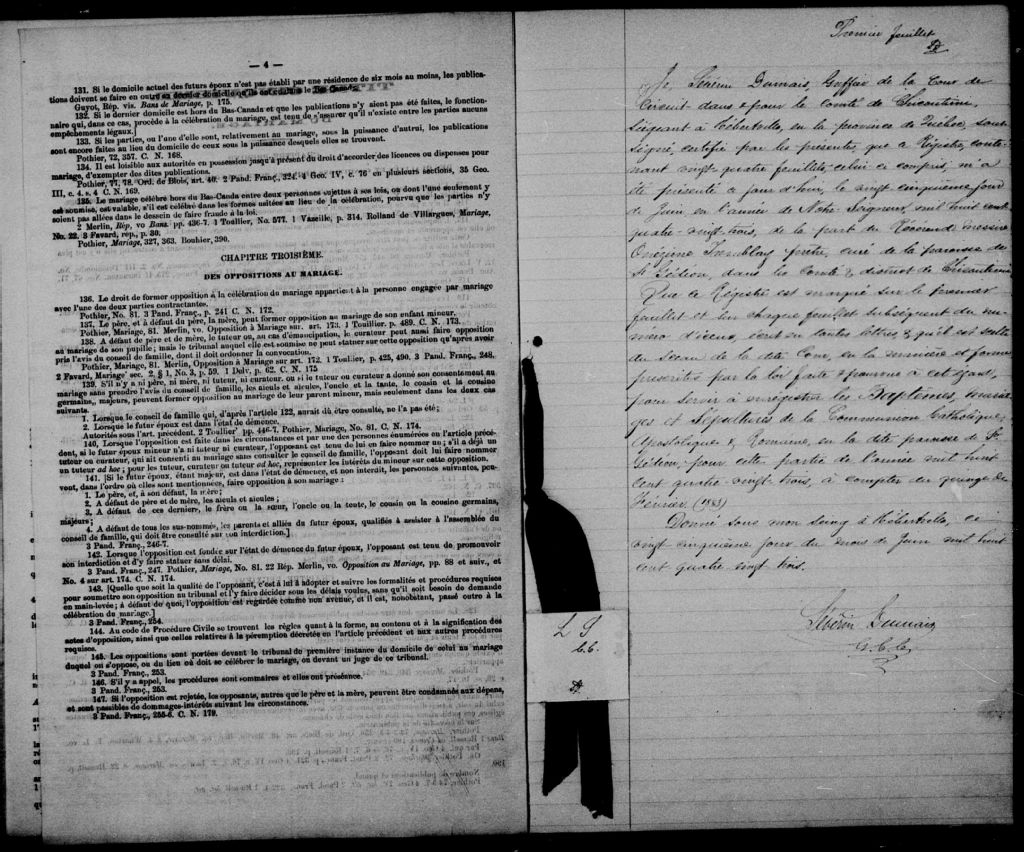 — 4 —
131. Si le domicile actuel des futurs époux n'est pas établi par une résidence de six mois au moins, les publica-
tions doivent se faire en outre au dernier domicile qu'ils ont eu dans le Bas-Canada.
Guyot, Rép. vis. Bans de Mariage, p. 175.
132. Si le dernier domicile est hors du Bas-Canada et que les publications n'y aient pas été faites, le fonction-
naire qui, dans ce cas, procède à la célébration du mariage, est tenu de s'assurer qu'il n'existe entre les parties aucuns
empêchements légaux.]
133. Si les parties, ou l'une d'elle sont, relativement au mariage, sous la puissance d'autrui, les publications
sont encore faites au lieu du domicile de ceux sous la puissance desquels elles se trouvent.
Pothier, 72, 357. C. N. 168.
134. Il est loisible aux autorités en possession jusqu'à présent du droit d'accorder des licences ou dispenses pour
mariage, d'exempter des dites publications.
Pothier, 77, 78. Ord. de Blois, art. 40. 2 Pand. Franç., 324. 4 Geo. IV, c. 76 en plusieurs sections, 35 Geo.
III, c. 4. s. 4 C. N. 169.
135. Le mariage célébré hors du Bas-Canada entre deux personnes sujettes à ses lois, ou dont l'une seulement y
est soumise, est valable, s'il est célébré dans les formes usitées au lieu de la célébration, pourvu que les parties n'y
soient pas allées dans le dessein de faire fraude à la loi.
2 Merlin, Rép, vo Bans. pp. 436-7. 1 Toullier, No. 577. 1 Vazeille, p. 314. Rolland de Villargues, Mariage,
No. 22. 3 Favard, rép., p. 30.
Pothier, Mariage, 327, 363. Bouhier, 390.
CHAPITRE TROISIÈME.
DES OPPOSITIONS AU MARIAGE.
136. Le droit de former opposition à la célébration du mariage appartient à la personne engagée par mariage
avec l'une des deux parties contractantes.
Pothier, No. 81. 3 Pand. Franç., p. 241 C. N. 172.
137. Le père, et à défaut du père, la mère, peut former opposition au mariage de son enfant mineur.
Pothier, Mariage, 81. Merlin, vo. Opposition à Mariage sur. art. 173. 1 Toullier, p. 489. C. N. 173.
138. A défaut de père et de mère, le tuteur ou, au cas d'émancipation, le curateur peut aussi former opposition
au mariage de son pupille; mais le tribunal auquel elle est soumise ne peut statuer sur cette opposition qu'après avoir
pris l'avis du conseil de famille, dont il doit ordonner la convocation.
Pothier, Mariage, 81. Merlin, Opposition à Mariage sur art. 172. 1 Toullier, p. 425, 490. 3 Pand. Franç., 248.
2 Favard, Mariage sec. 2, § 1, No. 3, p. 59. 1 Delv, p. 62. C. N. 175
139. S'il n'y a ni père, ni mère, ni tuteur, ni curateur, ou si le tuteur ou curateur a donné son consentement au
mariage sans prendre l'avis du conseil de famille, les aïeuls et aïeules, l'oncle et la tante, le cousin et la cousine
germains, majeurs, peuvent former opposition au mariage de leur parent mineur, mais seulement dans les deux cas
suivants.
1. Lorsque le conseil de famille qui, d'après l'article 122, aurait dû être consulté, ne l'a pas été;
2. Lorsque le futur époux est dans l'état de démence.
Autorités sous l'art. précédent. 2 Toullier pp. 446-7. Pothier, Mariage, No. 81. C. N. 174.
140. Lorsque l'opposition est faite dans les circonstances et par une des personnes énumérées en l'article précé-
dent, si le futur époux mineur n'a ni tuteur ni curateur, l'opposant est tenu de lui en faire nommer un; s'il a déjà un
tuteur ou curateur, qui ait consenti au mariage sans consulter le conseil de famille, l'opposant doit lui faire nommer
un tuteur ad hoc; pour les tuteur, curateur ou tuteur ad hoc, représenter les intérêts du mineur sur cette opposition.
141. [Si le futur époux, étant majeur, est dans l'état de démence, et non interdit, les personnes suivantes, peu-
vent, dans l'ordre où elles sont mentionnées, faire opposition à son mariage:
1. Le père, et, à son défaut, la mère;
2. A défaut de père et de mère, les aïeuls et aïeules;
3. A défaut de ces dernier, le frère ou la sœur, l'oncle ou la tante, le cousin ou la cousine germains,
majeurs;
4. A défaut de tous les sus-nommés, les parents et alliés du futur époux, qualifiés à assister à l'assemblée du
conseil de famille, qui doit être consulté sur son interdiction.]
3 Pand. Franç., 246-7.
142. Lorsque l'opposition est fondée sur l'état de démence du futur époux, l'opposant est tenu de promouvoir
son interdiction et d'y faire statuer sans délai.
3 Pand. Franç., 247. Pothier, Mariage, No. 81. 22 Rép. Merlin, vo. Opposition au Mariage, pp. 88 et suiv., et
No. 4 sur art. 174. C. N. 174.
143. [Quelle que soit la qualité de l'opposant, c'est à lui à adopter et suivre les formalités et procédures requises
pour soumettre son opposition au tribunal et l'y faire décider sous les délais voulus, sans qu'il soit besoin de demande
en main-levée; à défaut de quoi, l'opposition est regardée comme non avenue, et il est, nonobstant, passé outre à la
célébration du mariage.]
3 Pand. Franç., 254.
144. Au code de Procédure Civile se trouvent les règles quant à la forme, au contenu et à la signification des
actes d'opposition, ainsi que celles relatives à la péremption décrétée en l'article précédent et aux autres procédures
requises.
145. Les oppositions sont portées devant le tribunal de première instance du domicile de celui au mariage
duquel on s'oppose, ou du lieu où doit se célébrer le mariage, ou devant un juge de ce tribunal.
3 Pand. Franç., 253.
146. S'il y a appel, les procédures sont sommaires et elles ont préséance.
3 Pand. Franç., 253.
147. Si l'opposition est rejetée, les opposants, autres que le père et la mère, peuvent être condamnés aux dépens,
et sont passibles de dommages-intérêts suivant les circonstances.
3 Pand. Franç., 255-6. C. N. 179.
L S
c.c.
Premier feuillet
Je, Sévérin Dumais, Greffier de la Cour de
Circuit dans & pour le comté de Chicoutimi,
Siégeant à Hébertville, en la province de Québec, sous-
signé, certifie par les présentes, que ce Régistre, conte-
nant vingt quatre feuillets, celui ci compris, m'a
été présenté ce jour d'hui, le vingt cinquième jour
de Juin, en l'année de Notre Seigneur, mil huit cent
quatre-vingt-trois, de la part du Révérend messire
Onézime Tremblay prêtre, curé de la paroisse de
St Gédéon, dans les Comté & district de Chicoutimi
Que ce Régistre est marqué sur le premier
feuillet et sur chaque feuillet subséquent du nu-
méro d'icelui, écrit en toutes lettres & qu'il est scellé
du Sceau de la dite Cour, en la manière et forme
prescrites par la loi faite & pourvue à cet égard,
pour servir à enrégistrer les Baptêmes, maria-
ges et Sépultures de la Communion Catholique,
Apostolique & Romaine, en la dite paroisse de St
Gédéon, pour cette partie de l'année mil huit
cent quatre-vingt trois, à compter du quinze de
Février (1883)
Donné sous mon seing à Hébertville, ce
vingt cinquième jour du mois de Juin mil huit
cent quatre vingt trois.
Sévérin Dumais
G. C. C.